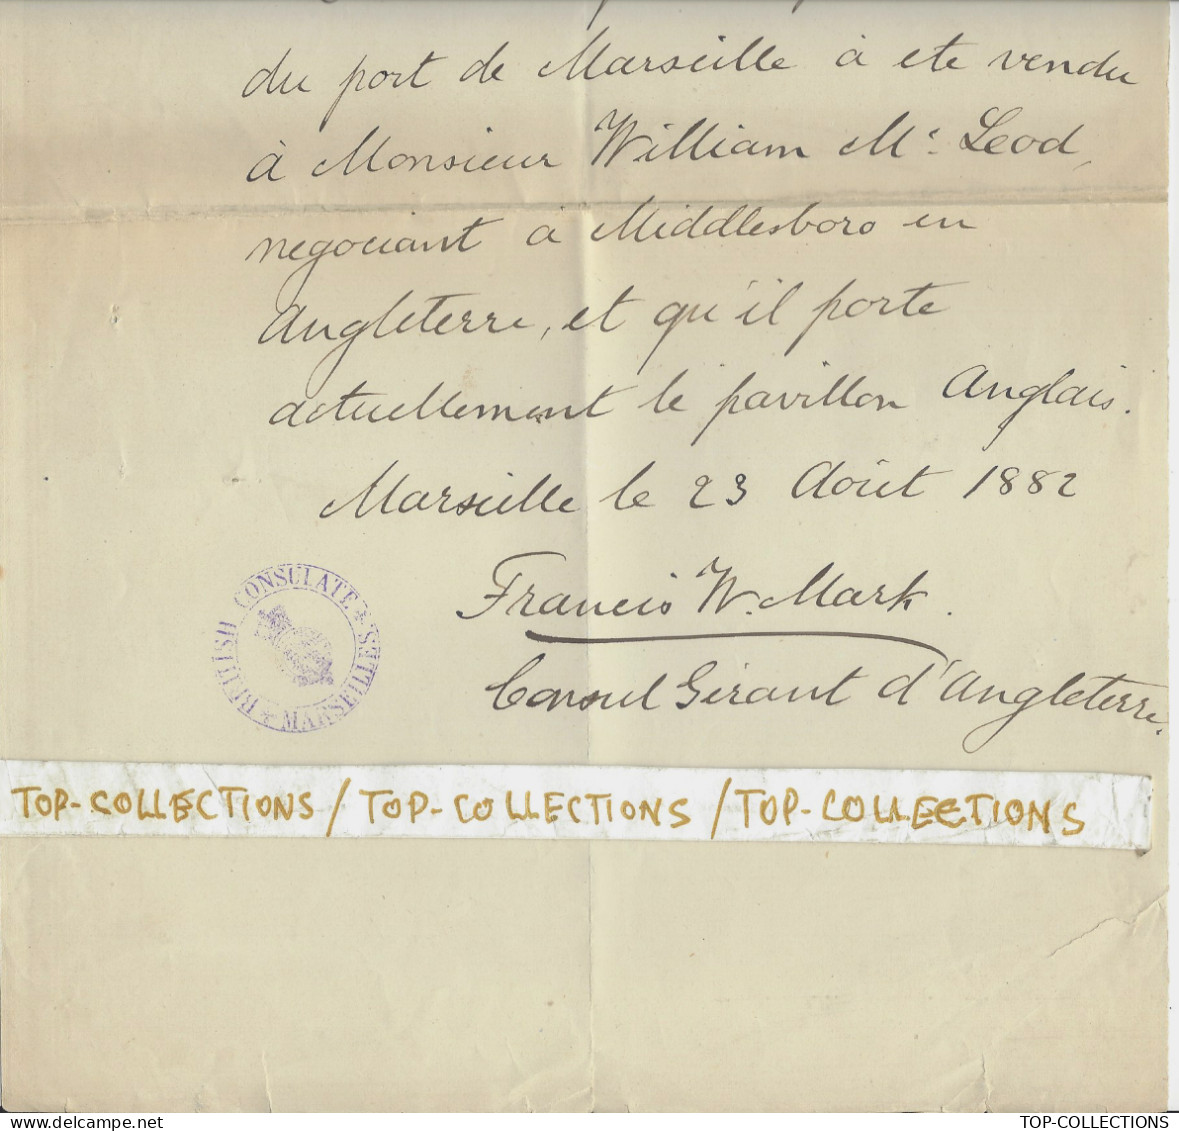 du port de Marseille à ete vendu
à Monsieur William Mc. Leod,
negociant à Middlesboro en
Angleterre, et qu'il porte
actuellement le pavillon Anglais.
Marseille le 23 Août 1882
Francis W. Mark.
Consul Gérant d'Angleterre.
BRITISH CONSULATE MARSEILLES
TOP-COLLECTIONS / TOP-COLLECTIONS / TOP-COLLECTIONS
TOP-COLLECTIONS